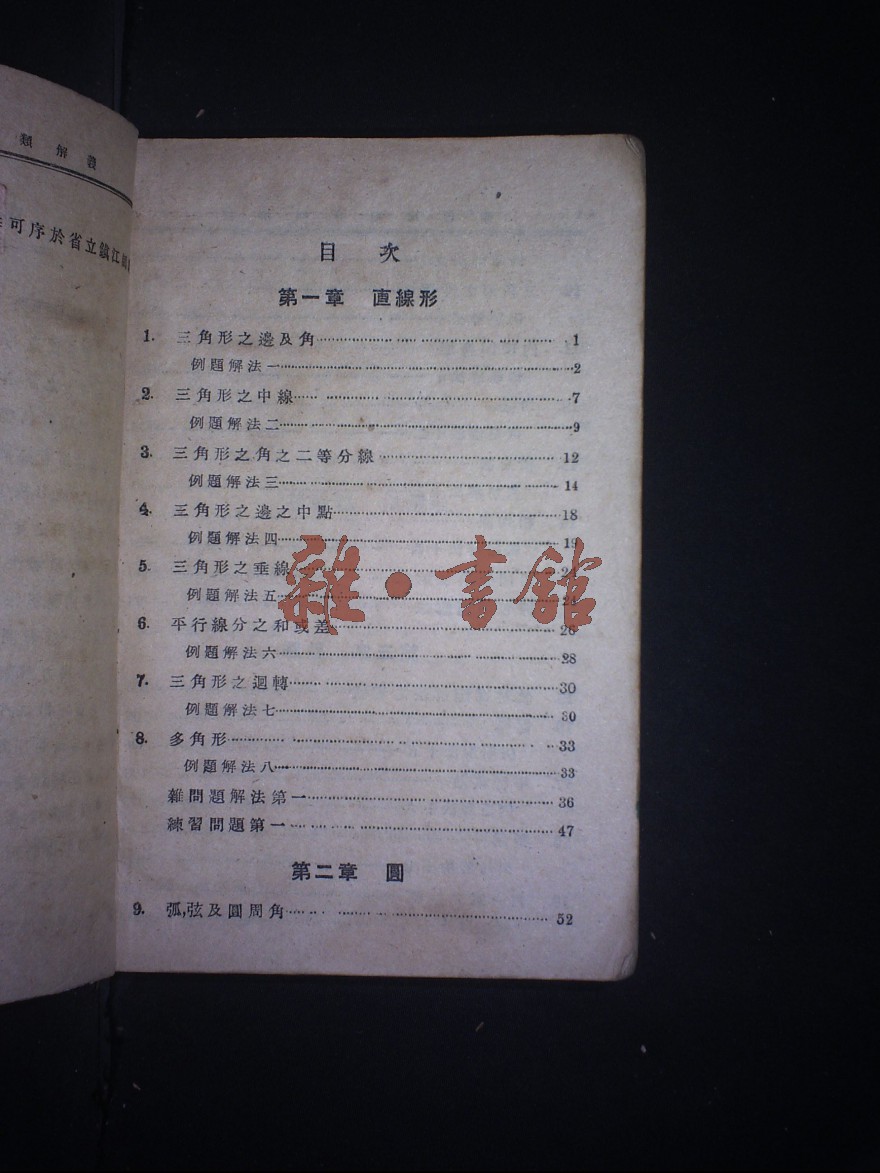 類解義
可序於省立鎮江
目 次
第一章 直線形
1. 三角形之邊及角 1
例題解法一 2
2. 三角形之中線 7
例題解法二 9
3. 三角形之角之二等分線 12
例題解法三 14
4. 三角形之邊之中點 18
例題解法四 19
5. 三角形之垂線
例題解法五
6. 平行線分之和或差 26
例題解法六 28
7. 三角形之迴轉 30
例題解法七 30
8. 多角形 33
例題解法八 33
雜問題解法第一 36
練習問題第一 47
第二章 圓
9. 弧,弦及圓周角 52
雜·書館